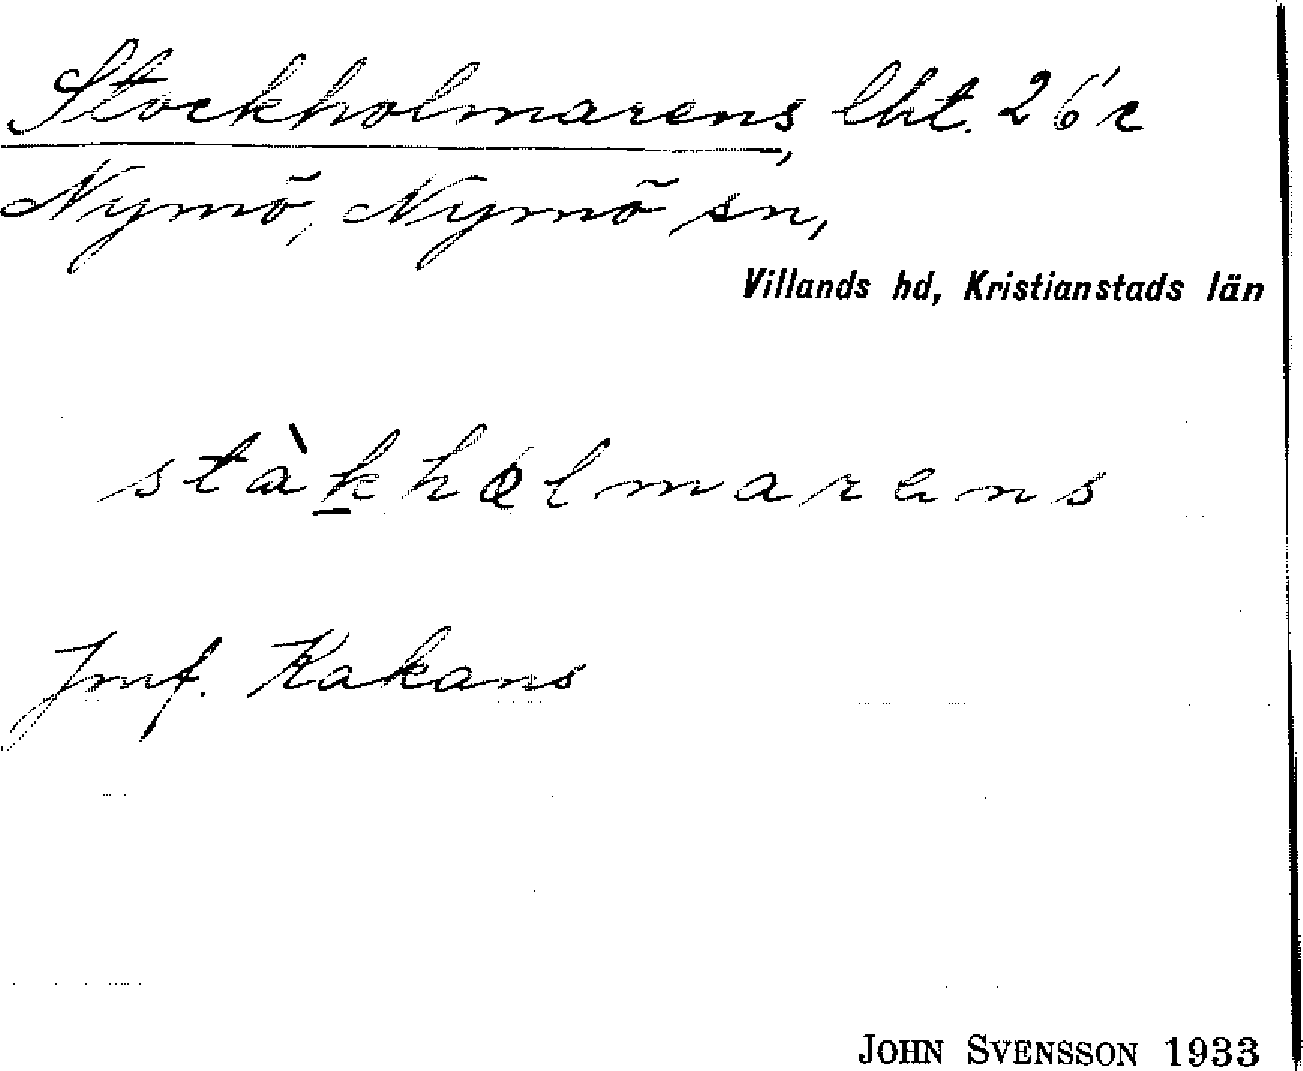 Stockholmarens, lht. 26'c
Nymö, Nymö sn,
Villands hd, Kristianstads län
stàkholmarens
Jmf. Kakans
JOHN SVENSSON 1933